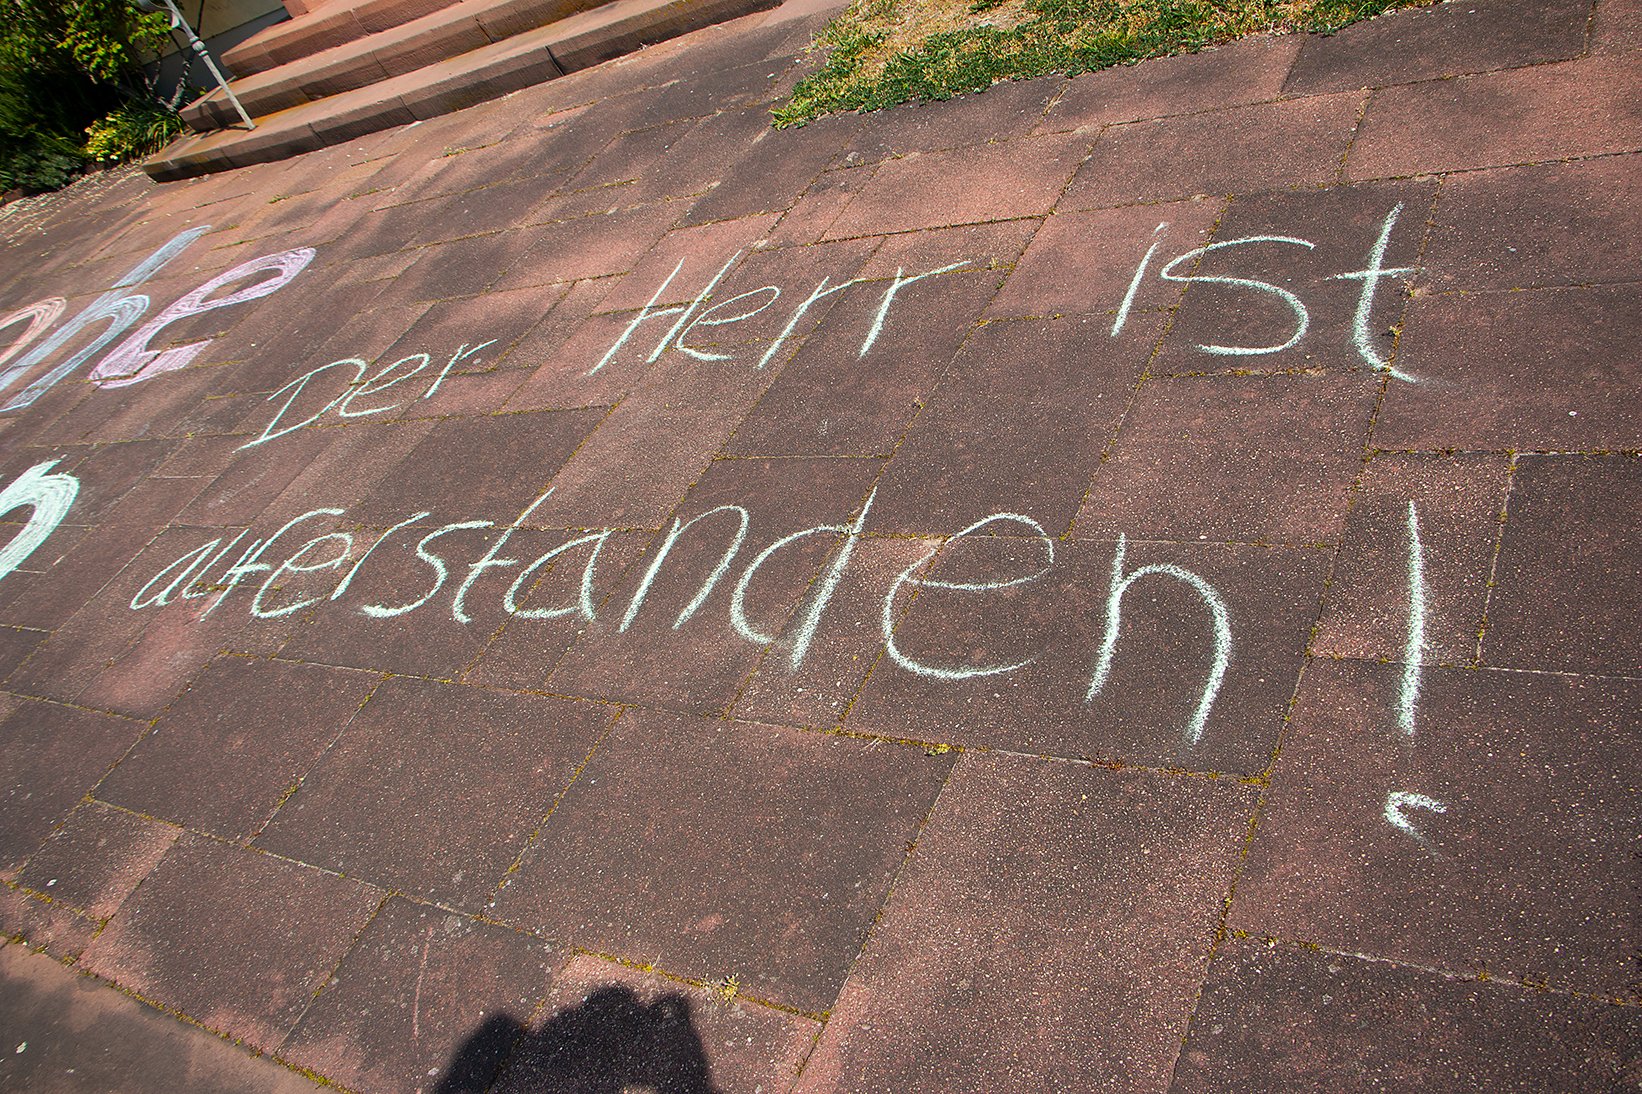 Der Herr ist
auferstanden!